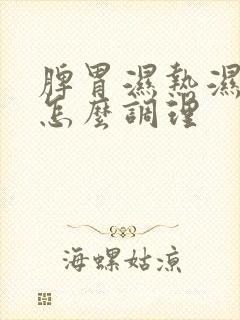 脾胃濕熱濕
怎麼調理
海螺姑涼